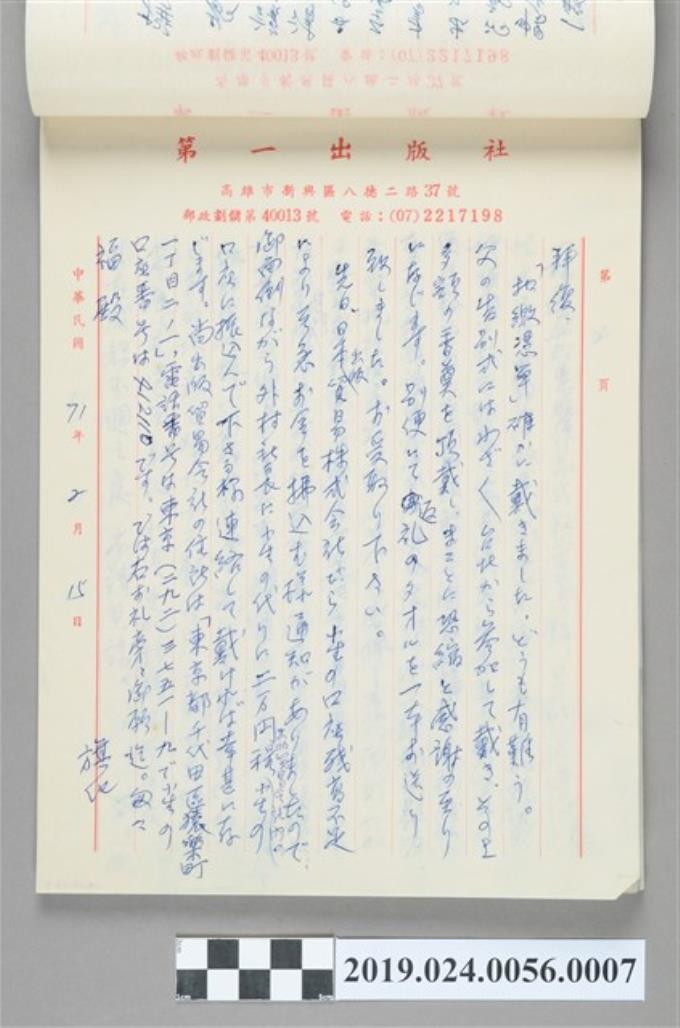 郵政劃儲第40013號 電話:(07)2217198
高雄市新興區八德二路37號
第一出版社
第一出版社
高雄市新興區八德二路37號
郵政劃儲第40013號 電話:(07)2217198
第 頁
拜復、
「扣繳憑單」確かに戴きました。どうも有難う。
父の告別式にはわざ〱台北から参加して戴き、その上
多額の香奠を頂戴し、まことに恐縮と感謝の至り
になじます。別便にて返礼のタオルを一本お送り
致しました。お受取り下さい。
先日、日本出版貿易株式会社から小生の口座残高不足
により至急お金を振込む様通知がありましたので、
御面倒ながら外村社長に小生の代りに二万円程小生の
口座に振込んで下さる様連絡して戴ければ幸甚にな
じます。尚出版貿易会社の住所は「東京都千代田区猿楽町
一丁目二ノ一」、電話番号は東京(二九二)三七五一―九で小生の
口座番号は です。では右お礼旁々御願迄。匆々
福 殿
旗化
中華民國 71年 2月 15日
2019.024.0056.0007